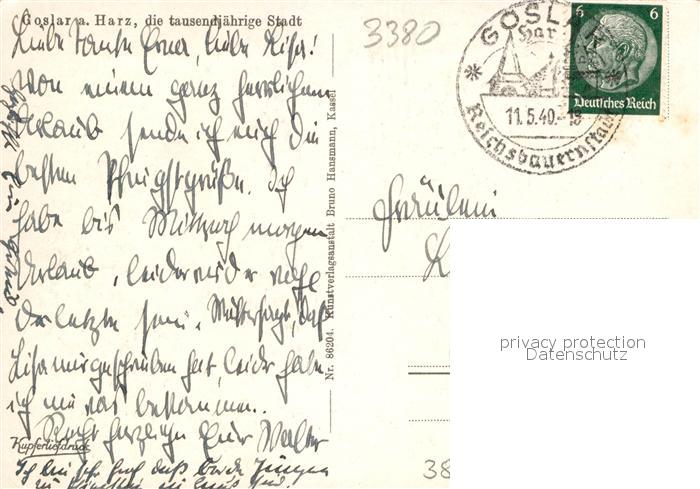 Goslar a. Harz, die tausendjährige Stadt
Liebe Tante Erna, liebe Lisa!
Von einem ganz herrlichen
Urlaub sende ich euch die
besten Pfingstgrüße. Ich
habe bis Mittwoch morgen
Urlaub, leider wird er wohl
der letzte sein. Mutter sagt, daß
Lisa mir geschrieben hat, leider habe
ich nie was bekommen.
Recht herzlich Euer Walter
Ich bin sehr froh daß beide Jungen
Kupfertiefdruck
Nr. 86204. Kunstverlagsanstalt Bruno Hansmann, Kassel
3380
GOSLAR
Harz
11.5.40.-18
Reichsbauernstadt
6 6
Deutsches Reich
Fräulein
privacy protection
Datenschutz
38